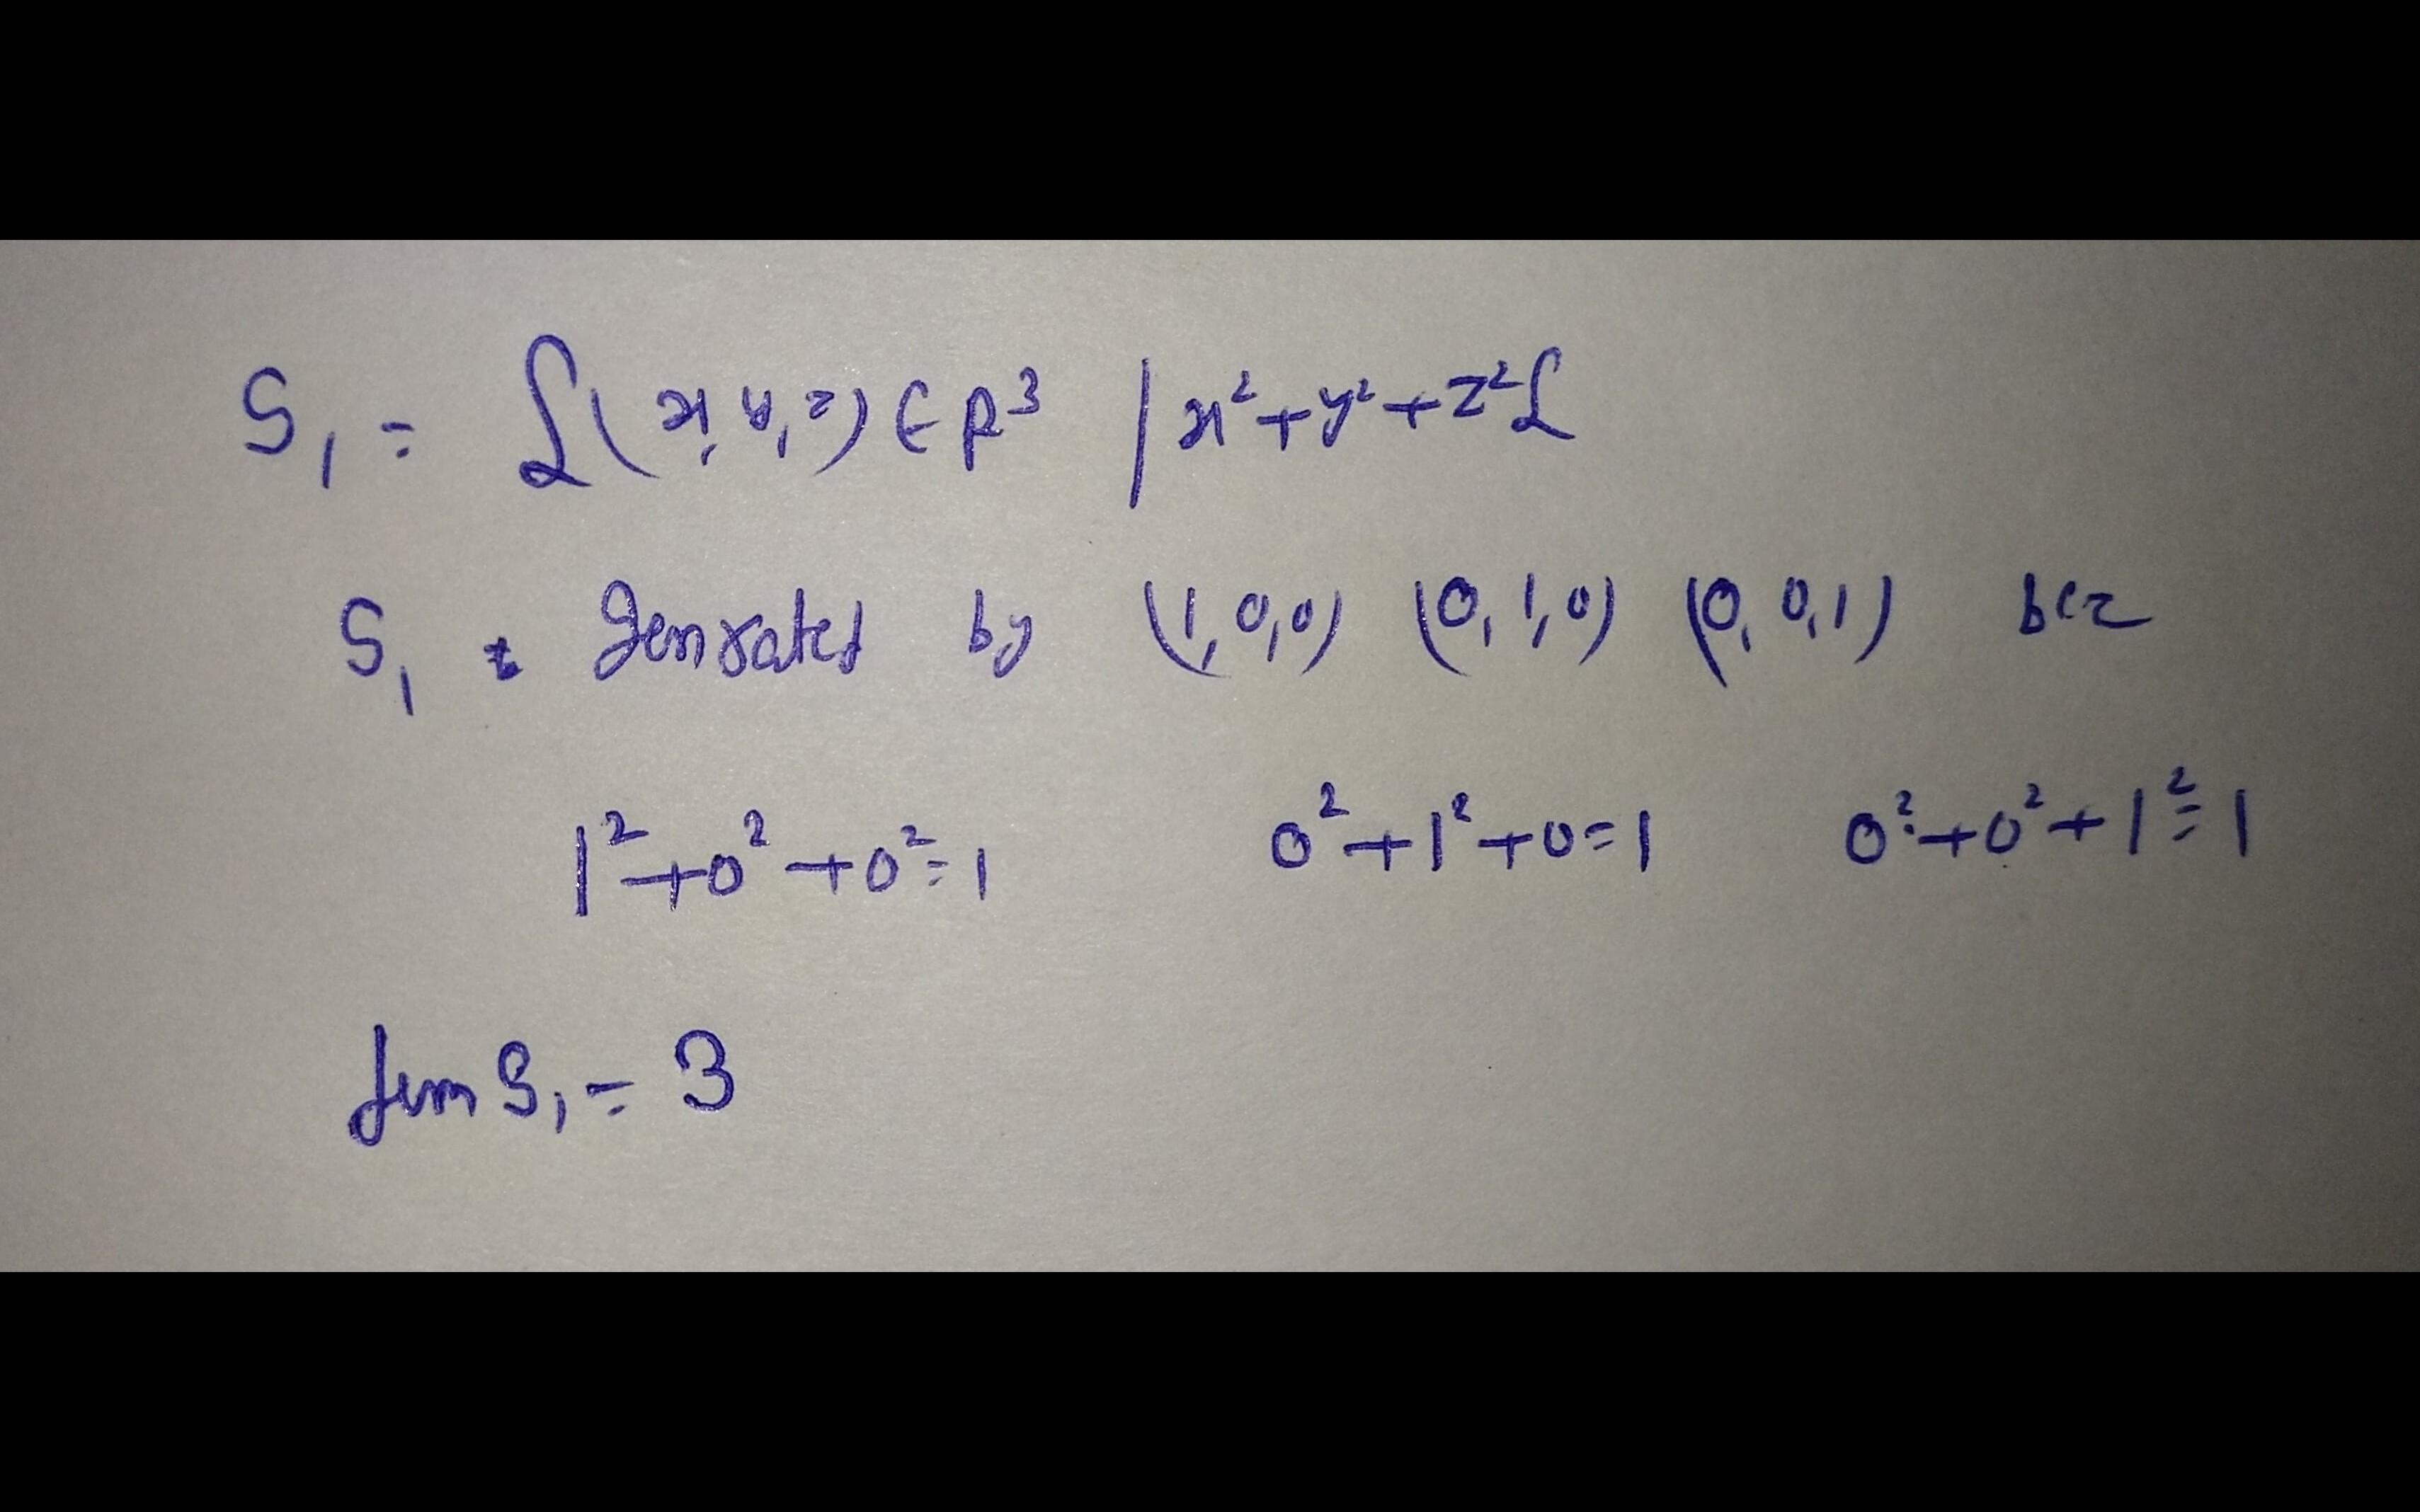 S₁ = {(x, y, z) ∈ R³ | x² + y² + z² {
S₁ = Genrated by (1,0,0) (0,1,0) (0,0,1) bcz
1² + 0² + 0² = 1 0² + 1² + 0 = 1 0² + 0² + 1² = 1
dim S₁ = 3